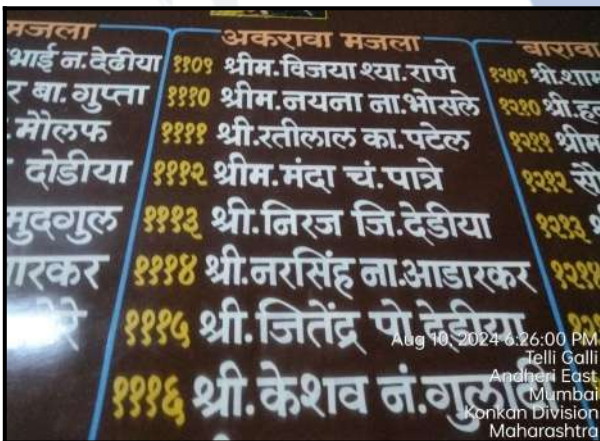 मजला
भाई न. देढीया
र बा. गुप्ता
मौलफ
दोडीया
मुदगुल
अकरावा मजला
११०९ श्रीम. विजया श्या. राणे
१११० श्रीम. नयना ना. भोसले
११११ श्री. रतीलाल का. पटेल
१११२ श्रीम. मंदा चं. पात्रे
१११३ श्री. निरज जि. देडीया
१११४ श्री. नरसिंह ना. आडारकर
१११५ श्री. जितेंद्र पो. देडीया
१११६ श्री. केशव नं.
बारावा
१२०९ श्री. शाम
१२१० श्री.
१२११ श्रीम
१२१२ सौ
१२१३
१२१४
Aug 10, 2024 6:26:00 PM
Telli Galli
Andheri East
Mumbai
Konkan Division
Maharashtra